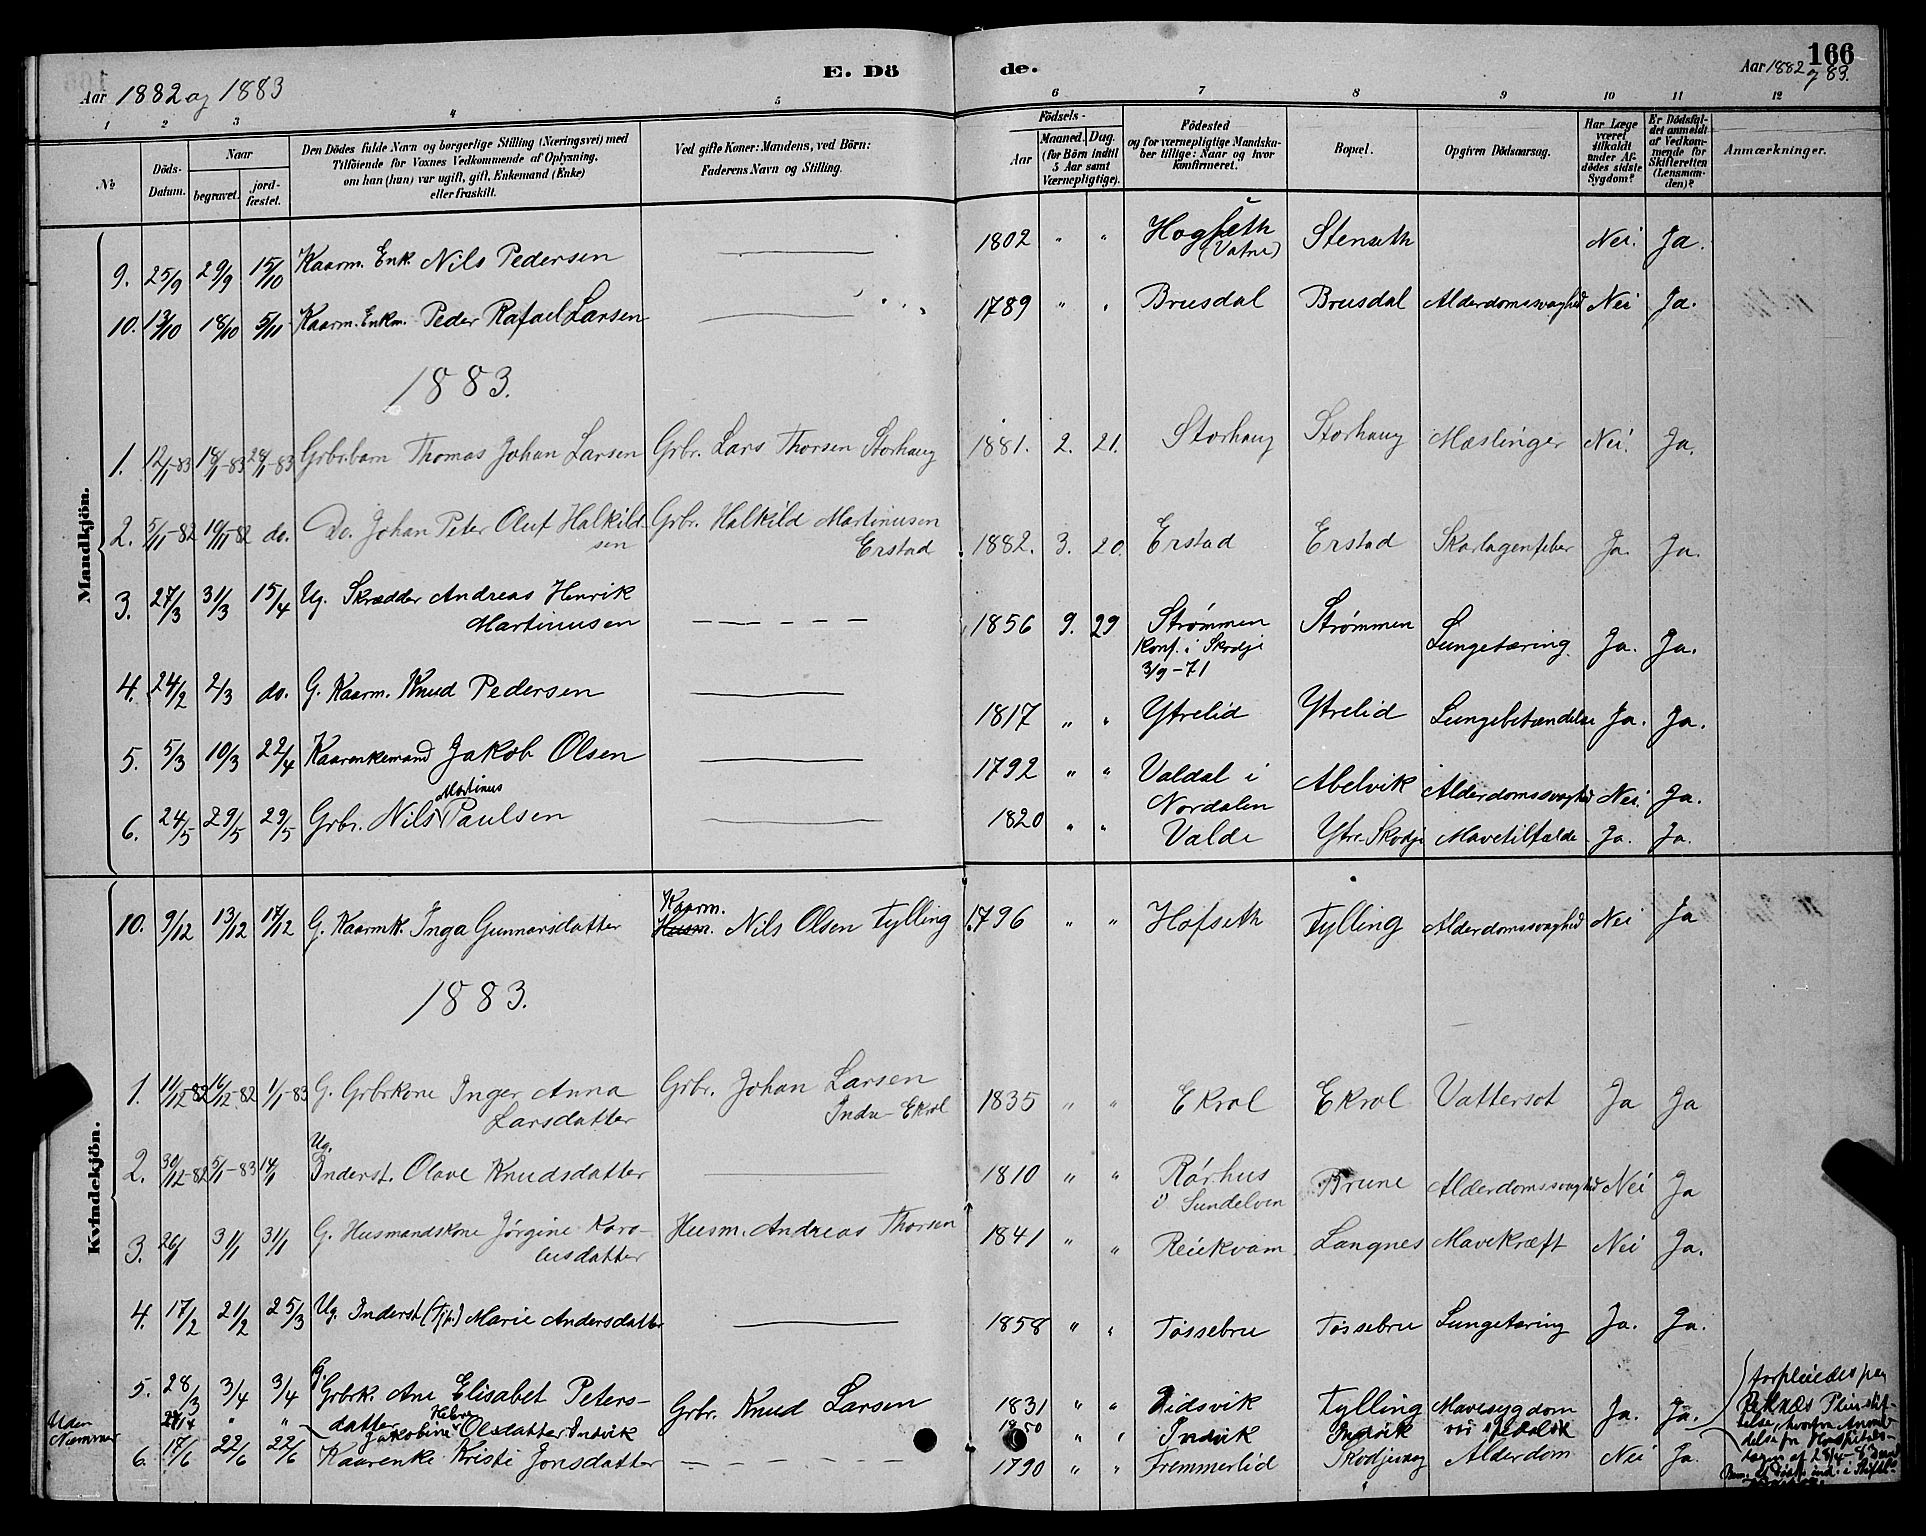 166
E. Dö de.
Aar 1882 og 1883
Aar 1882 og 83.
1 2 3 4 5 6 7 8 9 10 11 12
No
Döds-Datum.
Naar
begravet.
jord-fæstet.
Den Dödes fulde Navn og borgerlige Stilling (Næringsvei) med
Tilföiende for Voxnes Vedkommende af Oplysning,
om han (hun) var ugift, gift, Enkemand (Enke)
eller fraskilt.
Ved gifte Koner: Mandens, ved Börn:
Faderens Navn og Stilling.
Födsels-
Aar
Maaned. Dag.
(for Börn indtil
5 Aar samt
Værnepligtige).
Födested
og for værnepligtige Mandska-
ber tillige: Naar og hvor
konfirmeret.
Bopæl.
Opgiven Dödsaarsag.
Har Læge
været
tilkaldt
under Af-
dödes sidste
Sygdom?
Er Dödsfal-
det anmeldt
af Vedkom-
mende for
Skifteretten
(Lensman-
den)?
Anmærkninger.
Mandkjön.
9. 25/9 29/9 15/10 Kaarm. Enk. Nils Pedersen 1802 " " Hogseth (Vatne) Stenseth Nei. Ja.
10. 13/10 18/10 5/11 Kaarm. Enkm. Peder Rafael Larsen 1789 " " Brusdal Brusdal Alderdomssvaghed Nei Ja.
1883.
1. 12/1-83 18/1-83 28/1-83 Grbr.barn Thomas Johan Larsen Grbr. Lars Thorsen Storhaug 1881. 2. 21. Storhaug Storhaug Mæslinger Nei. Ja.
2. 5/11-82 19/11-82 do. Do. Johan Peter Oluf Halkild- Grbr. Halkild Martinusen
sen Erstad 1882. 3. 20. Erstad Erstad Skarlagenfeber Ja. Ja.
3. 27/3 31/3 15/4 Ug. Skrædder Andreas Henrik
Martinusen 1856 9. 29 Strømmen Strømmen Lungetæring Ja. Ja.
Konf. i Skodje
3/9-71
4. 24/2 2/3 do. G. Kaarm. Knud Pedersen 1817 " " Ytrelid Ytrelid Lungebetændelse Ja. Ja.
5. 5/3 10/3 22/4 Kaarenkemand Jakob Olsen 1792 " " Valdal i Nordalen Abelvik Alderdomssvaghed Nei. Ja.
6. 24/5 29/5 29/5 Grbr. Nils Martinus Paulsen 1820 " " Valde Ytre-Skodje Mavetilfælde Ja. Ja.
Kvindekjön.
10. 9/12 13/12 17/12 G. Kaarmk. Inga Gunnarsdatter Husm. Kaarm. Nils Olsen Fylling 1796 " " Hofseth Fylling Alderdomssvaghed Nei Ja
1883.
1. 11/12-82 16/12-82 1/1-83 G. Grbrkone Inger Anna Grbr. Johan Larsen
Larsdatter Indre Ekrol 1835 " " Ekrol Ekrol Vattersot Ja Ja
2. 30/12-82 5/1-83 14/1 Ug. Inderst. Olave Knudsdatter 1810 " " Rørhus i Sundelven Brune Alderdomssvaghed Nei Ja
3. 26/1 31/1 31/1 G. Husmandskone Jørgine Karo- Husm. Andreas Thorsen
lusdatter 1841 " " Reiekvam Langnes Mavekræft Nei Ja.
4. 17/2 21/2 25/3 Ug. Inderst (Tj.) Marie Andersdatter 1858 " " Tøssebru Tøssebru Lungetæring Ja. Ja.
5. 28/3 3/4 3/4 G. Grbrk. Ane Elisabet Peters-
datter Grbr. Knud Larsen 1831 " " Lidsvik Fylling Mavesygdom Ja. Ja.
Uden Nummer 24/4 " " Jakobine Olsdatter Indvik 1850 " " Indvik Indvik var spedalsk
6. 17/6 22/6 22/6 Kaarenke Kristi Jonsdatter 1790 " " Fremmerlid Skodjevaag Alderdom Nei Ja.
forpleiedes paa
Reknæs Pleiestif-
telse, hvorfra Anmel-
delse fra Hospitals-